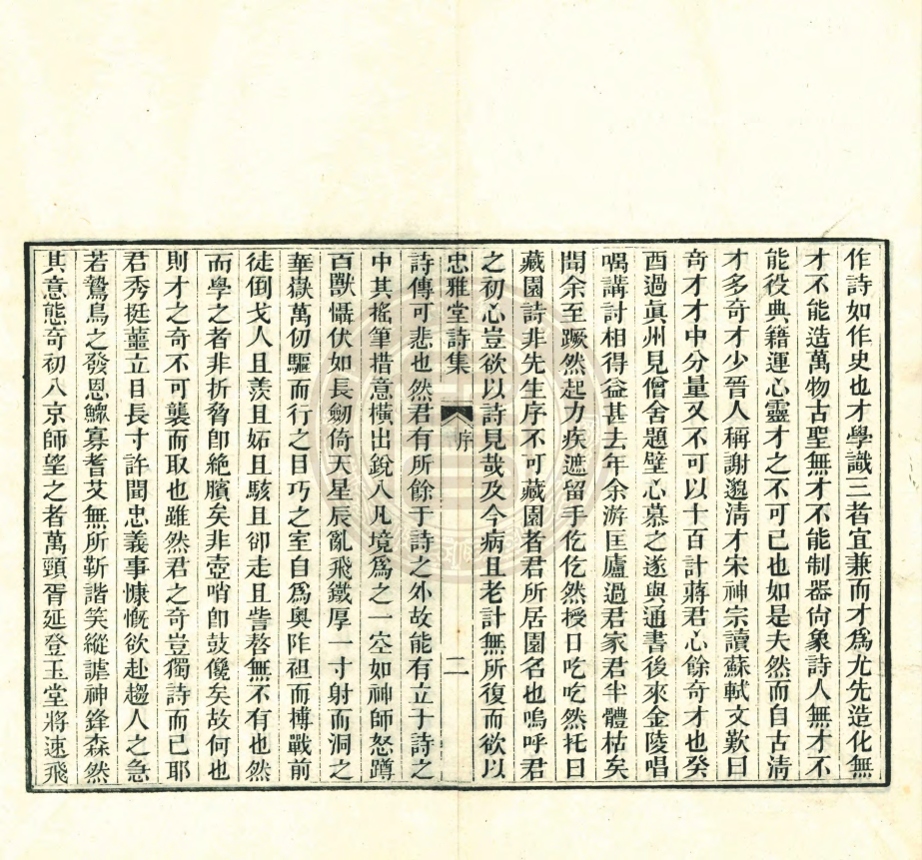 作詩如作史也才學識三者宜兼而才爲尤先造化無
才不能造萬物古聖無才不能制器尙象詩人無才不
能役典籍運心靈才之不可已也如是夫然而自古淸
才多奇才少晉人稱謝邈淸才宋神宗讀蘇軾文歎曰
奇才才中分量又不可以十百計蔣君心餘奇才也癸
酉過眞州見僧舍題壁心慕之遂與通書後來金陵唱
喁講討相得益甚去年余游匡廬過君家君半體枯矣
聞余至蹶然起力疾遮留手仡仡然授曰吃吃然托曰
藏園詩非先生序不可藏園者君所居園名也嗚呼君
之初心豈欲以詩見哉及今病且老計無所復而欲以
忠雅堂詩集 序 二
詩傳可悲也然君有所餘于詩之外故能有立于詩之
中其搖筆措意橫出銳入凡境爲之一空如神師怒蹲
百獸慑伏如長劒倚天星辰亂飛鐵厚一寸射而洞之
華嶽萬仞驅而行之目巧之室自爲奧阼袒而搏戰前
徒倒戈人且羨且妬且駭且卻走且訾謷無不有也然
而學之者非折脅卽絕臏矣非壺哨卽鼓儳矣故何也
則才之奇不可襲而取也雖然君之奇豈獨詩而已耶
君秀挺薑立目長寸許聞忠義事慷慨欲赴趨人之急
若鷙鳥之發恩鰥寡耆艾無所靳諧笑縱謔神鋒森然
其意態奇初入京師望之者萬頸胥延登玉堂將速飛